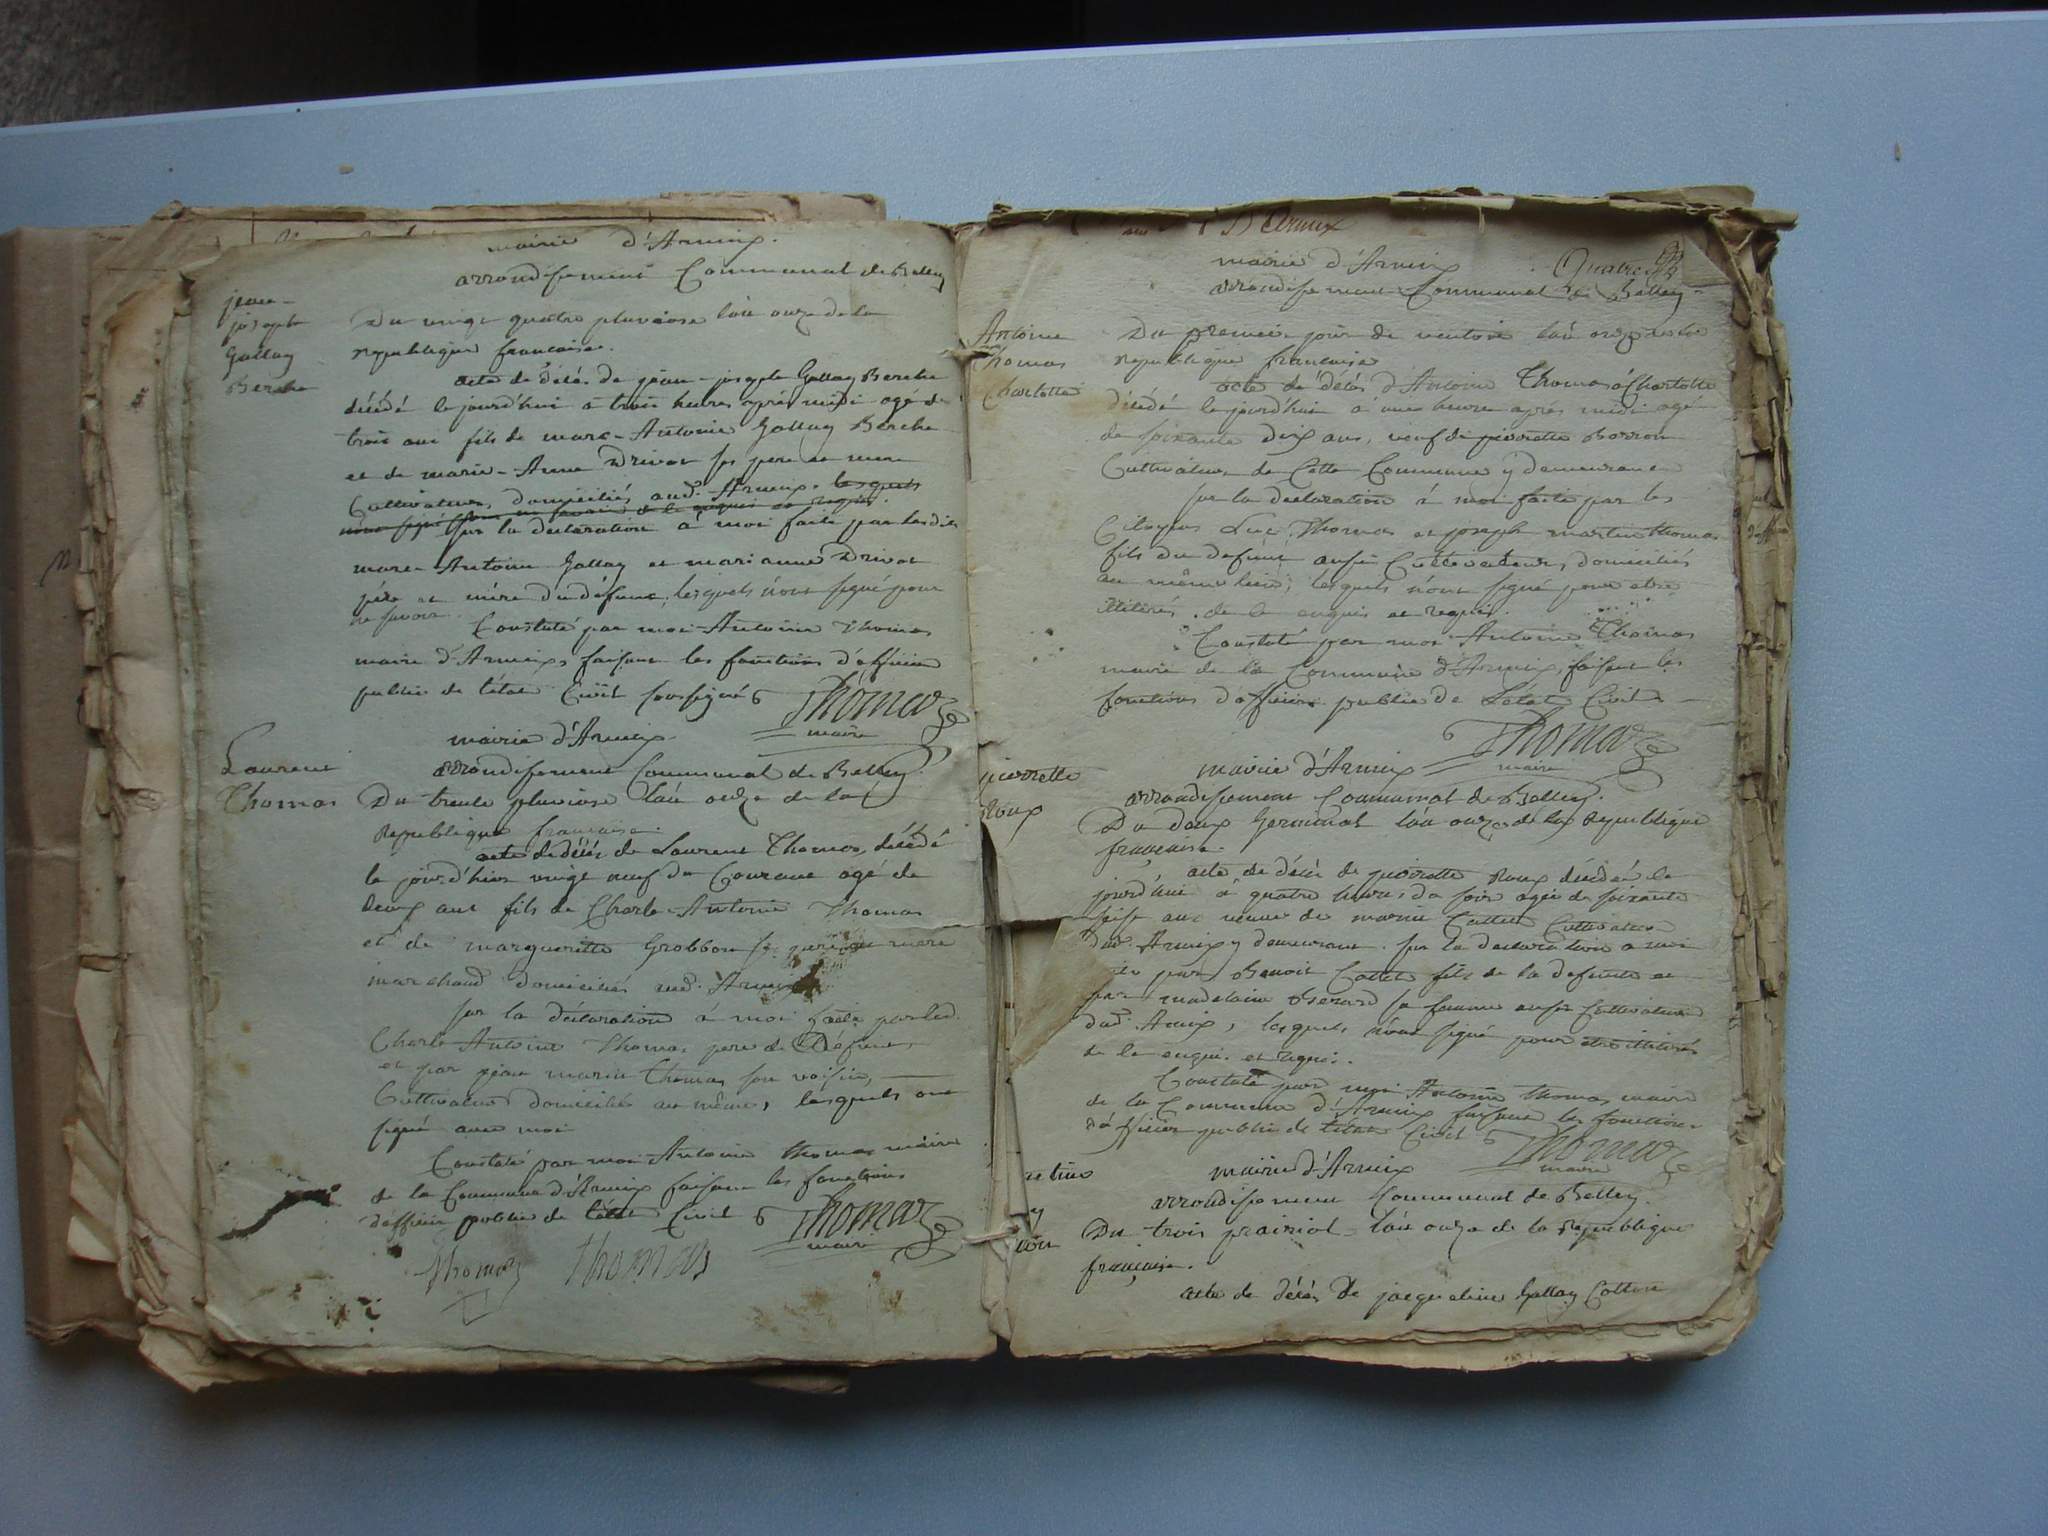 mairie d'Armix.
arrondissement Communal de Belley
jean-
joseph
Gallay
Berche
Du vingt quatre pluviose l'an onze de la
republique francaise.
acte de décès de jean-joseph Gallay Berche
décédé le jourd'hui à trois heures après midi agé de
trois ans fils de marc-Antoine Gallay Berche
et de marie-Anne Drivet ses pere et mere
Cultivateurs, domiciliés aud. Armix. lesquels
sur la declaration à moi faite par lesdits
marc Antoine Gallay et marianne Drivet
père et mère du défunt, lesquels n'ont signé pour
ne savoir
Constaté par moi Antoine Thomas
maire d'Armix, faisant les fonctions d'officier
public de l'état Civil soussigné
Thomas
maire
mairie d'Armix
arrondissement Communal de Belley.
Laurent
Thomas
Du trente pluviose l'an onze de la
Republique francaise.
acte de décès de Laurent Thomas, décédé
le jour d'hier vingt neuf du Courant agé de
deux ans fils de Charle-Antoine Thomas
et de margueritte Grobbon ses pere et mere
marchand domiciliés aud. Armix
sur la déclaration à moi faite par led.
Charle Antoine Thomas pere du Défunt,
et par jean marin Thomas son voisin,
Cultivateur domicilié au même, lesquels ont
signé avec moi
Constaté par moi Antoine thomas maire
de la Commune d'Armix faisant les fonctions
d'officier public de l'état Civil
Thomas
maire
Thomas Thomas
D'Armix
mairie d'Armix
arrondissement Communal de Belley
Antoine
Thomas
Charlotte
Du premier jour de ventose l'an onze de la
republique francaise
acte de décès d'Antoine Thomas à Charlotte
décédé le jourd'hui à une heure après midi agé
de soixante dix ans, veuf de pierrette Borron
Cultivateur de Cette Commune y demeurant
sur la declaration à moi faite par les
Citoyens Luc Thomas et joseph martin thomas
fils du defunt aussi Cultivateurs, domiciliés
au même lieu, lesquels n'ont signé pour etre
illitérés. de ce enquis et requis.
Constaté par moi Antoine Thomas
maire de la Commune d'Armix, faisant les
fonctions d'officier public de l'état Civil
Thomas
maire
mairie d'Armix
arrondissement Communal de Belley.
pierrette
Roux
Du deux Germinal l'an onze de la republique
française.
acte de décès de pierrette Roux décédée le
jourd'hui à quatre heures du soir agée de soixante
seise ans veuve de Cultivateur
dud. Armix y demeurant. sur la declaration a moi
par Benoit Cottet fils de la defunte et
par madelaine Berard sa femme aussi Cultivateurs
dud. Armix, lesquels n'ont signé pour etre illitérés
de ce enquis et requis.
Constaté par moi Antoine thomas maire
de la Commune d'Armix faisant les fonctions
d'officier public de l'état Civil
Thomas
maire
mairie d'Armix
arrondissement Communal de Belley.
Du trois prairial l'an onze de la Republique
française.
acte de décès de jacqueline Gallay Cottin